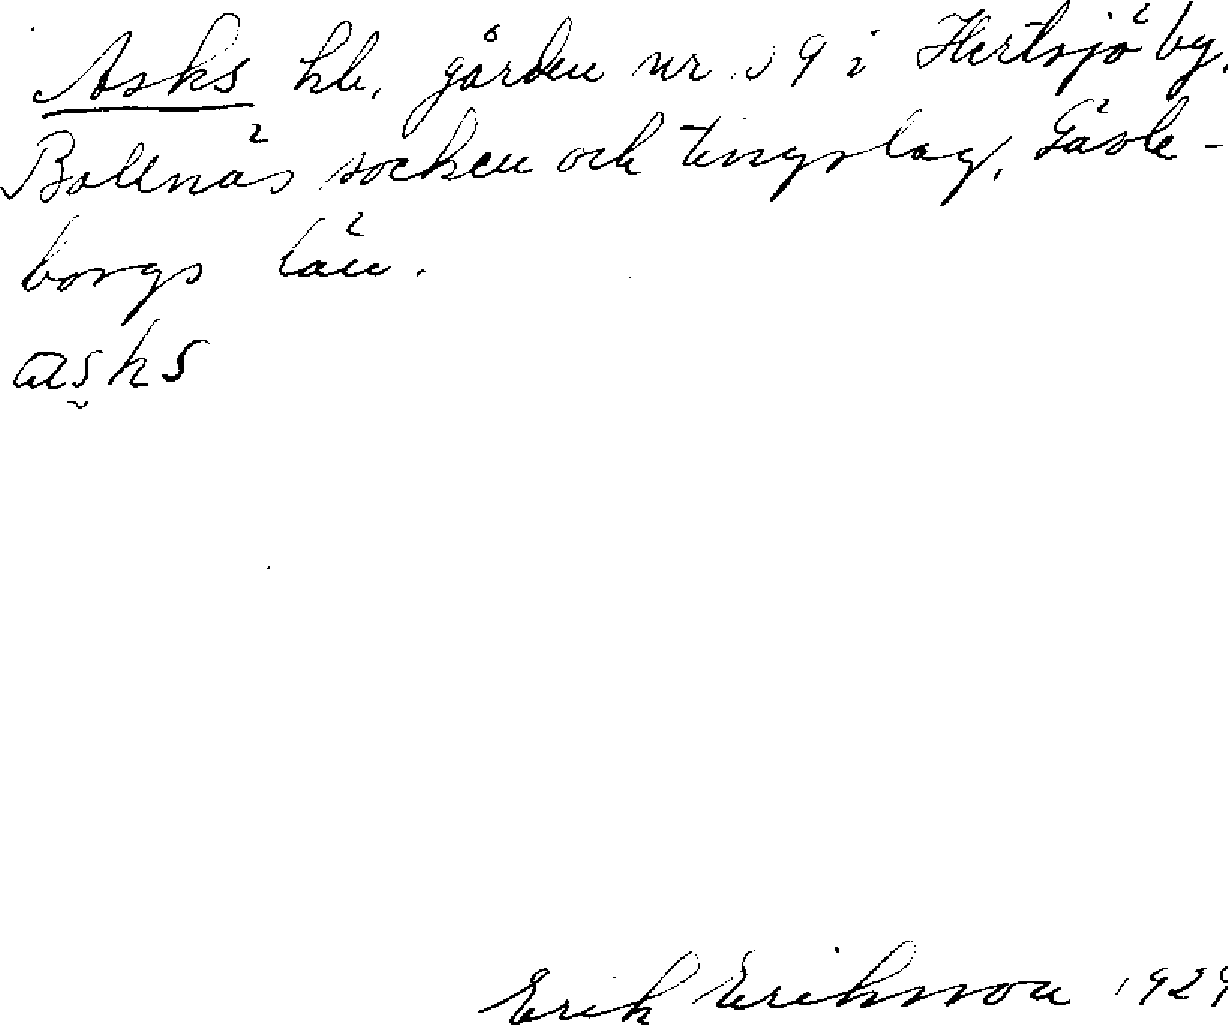 Asks hb, gården nr 9 i Hertsjö by,
Bollnäs socken och tingslag, Gävle-
borgs län.
asks
Erik Eriksson